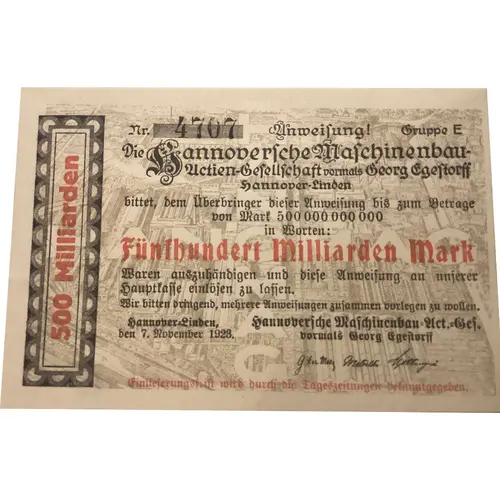 500 Milliarden
Nr. 4707 Anweisung! Gruppe E
Die Hannoversche Maschinenbau-
Actien-Gesellschaft vormals Georg Egestorff
Hannover-Linden
bittet, dem Überbringer dieser Anweisung bis zum Betrage
von Mark 500 000 000 000
in Worten:
Fünfhundert Milliarden Mark
Waren auszuhändigen und diese Anweisung an unserer
Hauptkasse einlösen zu lassen.
Wir bitten dringend, mehrere Anweisungen zusammen vorlegen zu wollen.
Hannover-Linden, Hannoversche Maschinenbau-Act.-Ges.
den 7. November 1923. vormals Georg Egestorff
Einlieferungsfrist wird durch die Tageszeitungen bekanntgegeben.